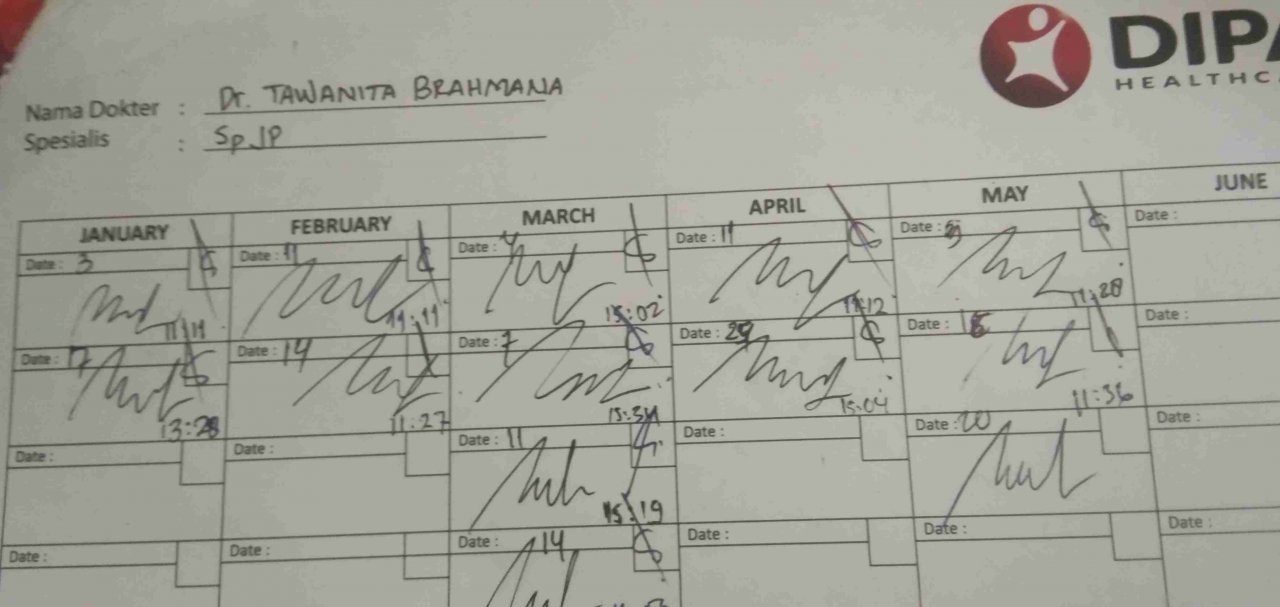 DIPA
HEALTHC
Nama Dokter : Dr. TAWANITA BRAHMANA
Spesialis : Sp JP
JANUARY FEBRUARY MARCH APRIL MAY JUNE
Date : 3 Date : 11 Date : 4 Date : 11 Date : 3 Date :
11:11 11:11 15:02 11:12 11:28
Date : 17 Date : 14 Date : 7 Date : 29 Date : Date :
13:28 11:27 15:34 15:04 11:36
Date : Date : Date : 11 Date : Date : 20 Date :
15:19
Date : Date : Date : 14 Date : Date : Date :